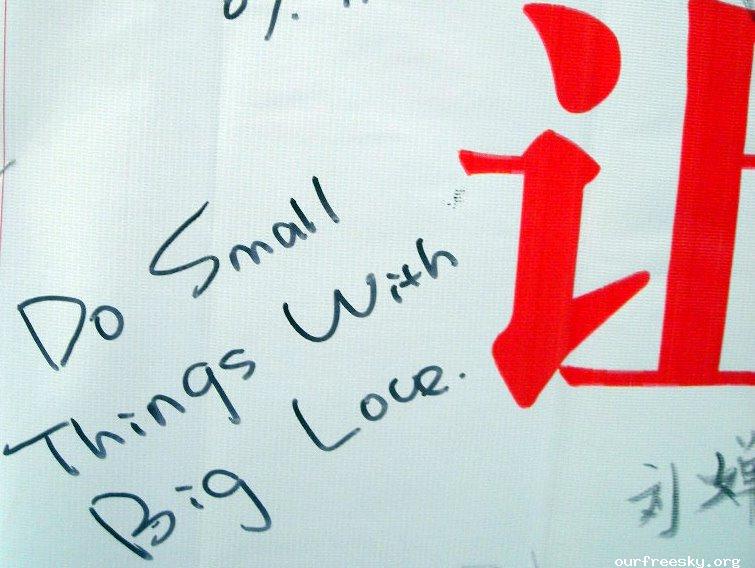 Do Small
Things With
Big Love.
让
刘婵
ourfreesky.org